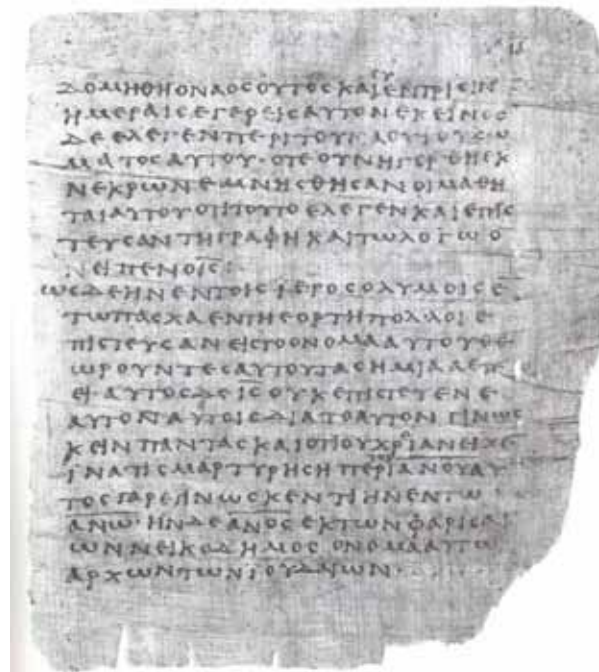 ΔΟΜΗΘΗΟΝΑΟϹΟΥΤΟϹΚΑΙϹΥΕΝΤΡΙϹΙΝ
ΗΜΕΡΑΙϹΕΓΕΡΕΙϹΑΥΤΟΝΕΚΕΙΝΟϹ
ΔΕΕΛΕΓΕΝΠΕΡΙΤΟΥΝΑΟΥΤΟΥϹΩ
ΜΑΤΟϹΑΥΤΟΥ·ΟΤΕΟΥΝΗΓΕΡΘΗΕΚ
ΝΕΚΡΩΝΕΜΝΗϹΘΗϹΑΝΟΙΜΑΘΗ
ΤΑΙΑΥΤΟΥΟΤΙΤΟΥΤΟΕΛΕΓΕΝΚΑΙΕΠΙϹ
ΤΕΥϹΑΝΤΗΓΡΑΦΗΚΑΙΤΩΛΟΓΩΟ
ΝΕΙΠΕΝΟΙ̅Ϲ̅:
ΩϹΔΕΗΝΕΝΤΟΙϹΙΕΡΟϹΟΛΥΜΟΙϹΕ
ΤΩΠΑϹΧΑΕΝΤΗΕΟΡΤΗΠΟΛΛΟΙΕ
ΠΙϹΤΕΥϹΑΝΕΙϹΤΟΟΝΟΜΑΑΥΤΟΥΘΕ
ΩΡΟΥΝΤΕϹΑΥΤΟΥΤΑϹΗΜΙΑΑΕΠ
ΕΙ·ΑΥΤΟϹΔΕΙ̅Ϲ̅ΟΥΚΕΠΙϹΤΕΥΕΝΕ
ΑΥΤΟΝΑΥΤΟΙϹΔΙΑΤΟΑΥΤΟΝΓΙΝΩϹ
ΚΕΙΝΠΑΝΤΑϹΚΑΙΟΤΙΟΥΧΡΙΑΝΕΙΧΕ
ΙΝΑΤΙϹΜΑΡΤΥΡΗϹΗΠΕΡΙΑ̅Ν̅Ο̅Υ̅ΑΥ
ΤΟϹΓΑΡΕΓΙΝΩϹΚΕΝΤΙΗΝΕΝΤΩ
Α̅Ν̅Ω̅·ΗΝΔΕΑ̅Ν̅Ο̅Ϲ̅ΕΚΤΩΝΦΑΡΙϹΑΙ
ΩΝΝΕΙΚΟΔΗΜΟϹΟΝΟΜΑΑΥΤΩ
ΑΡΧΩΝΤΩΝΙΟΥΔΑΙΩΝ·